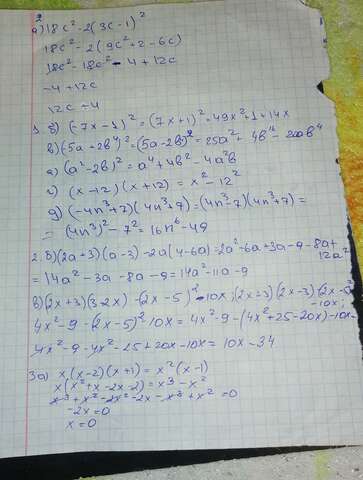 2
а) 18c² - 2(3c - 1)²
18c² - 2(9c² + 2 - 6c)
18c² - 18c² - 4 + 12c
-4 + 12c
12c - 4
1. б) (-7x - 1)² = (7x + 1)² = 49x² + 1 + 14x
в) (-5a + 2b⁴)² = (5a - 2b)² = 25a² + 4b¹⁶ - 20ab⁴
а) (a² - 2b)² = a⁴ + 4b² - 4a²b
г) (x - 12)(x + 12) = x² - 12²
д) (-4n³ + 7)(4n³ + 7) = (4n³ - 7)(4n³ + 7) =
= (4n³)² - 7² = 16n⁶ - 49
2. б) (2a + 3)(a - 3) - 2a(4 - 6a) = 2a² - 6a + 3a - 9 - 8a + 12a²
= 14a² - 3a - 8a - 9 = 14a² - 11a - 9
в) (2x + 3)(3 - 2x) - (2x - 5)² - 10x; (2x + 3)(2x - 3)(2x - 5) - 10x;
4x² - 9 - (2x - 5)² - 10x = 4x² - 9 - (4x² + 25 - 20x) - 10x
4x² - 9 - 4x² - 25 + 20x - 10x = 10x - 34
3а) x(x - 2)(x + 1) = x²(x - 1)
x(x² + x - 2x - 2) = x³ - x²
x³ + x² - 2x² - 2x - x³ + x² = 0
-2x = 0
x = 0